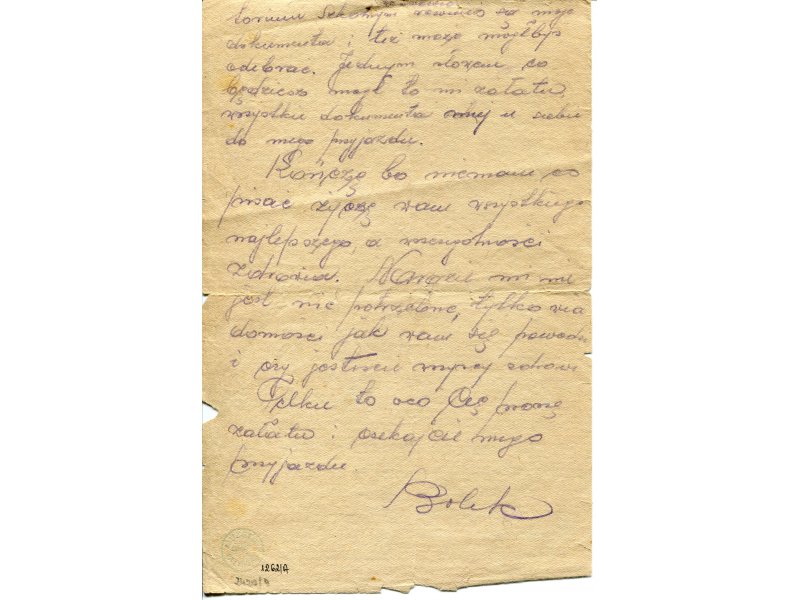 dokumenta i też może mógłbyś
odebrać. Jednym słowem co
będziesz mógł to mi załatw,
wszystkie dokumenta miej u siebie
do mego przyjazdu.
Kończę bo niemam co
pisać życzę wam wszystkiego
najlepszego, a wszczegolności
zdrowia. Narazie mi nie
jest nić potrzebne, tylko wia
domości jak wam się powodzi
i czy jesteście wszyscy zdrowi
Tylku to oco Cię proszę
załatw i czekajcie mego
przyjazdu.
Bolek
1262/4